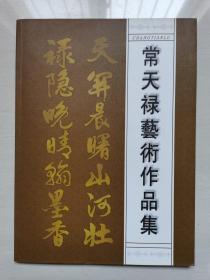 CHANGTIANLU
常天禄藝術作品集
天開晨曙山河壯
禄隐晚晴翰墨香